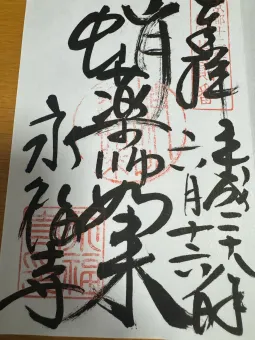 奉拝
平成二十八年
六月十六日
蛸薬師如来
永福寺